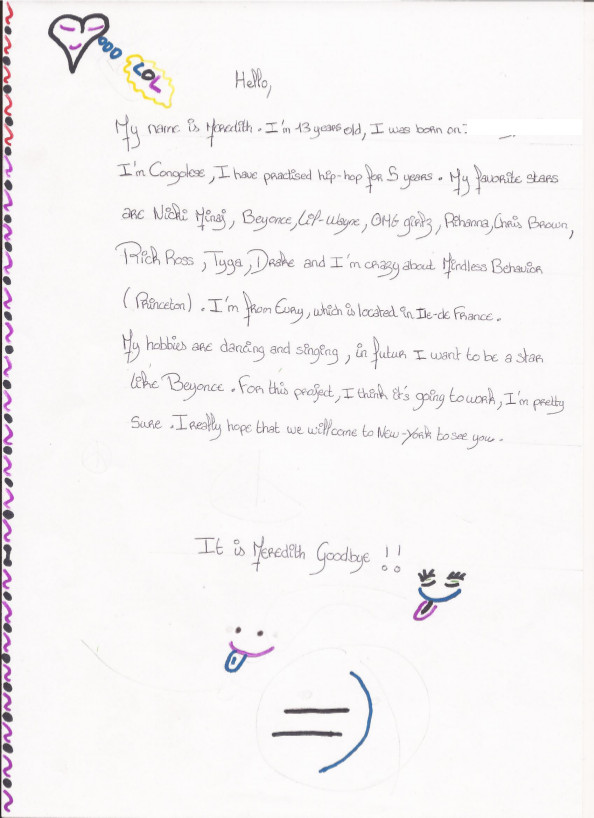 LOL
Hello,
My name is Meredith. I'm 13 years old, I was born on:
I'm Congolese, I have practised hip-hop for 5 years. My favorite stars
are Nicki Minaj, Beyonce, Lil-Wayne, OMG girlz, Rihanna, Chris Brown,
Rick Ross, Tyga, Drake and I'm crazy about Mindless Behavior
(Princeton). I'm from Evry, which is located in Ile-de France.
My hobbies are dancing and singing, in futur I want to be a star
like Beyonce. For this project, I think it's going to work, I'm pretty
sure. I really hope that we will come to New-York to see you.
It is Meredith Goodbye !!
=)